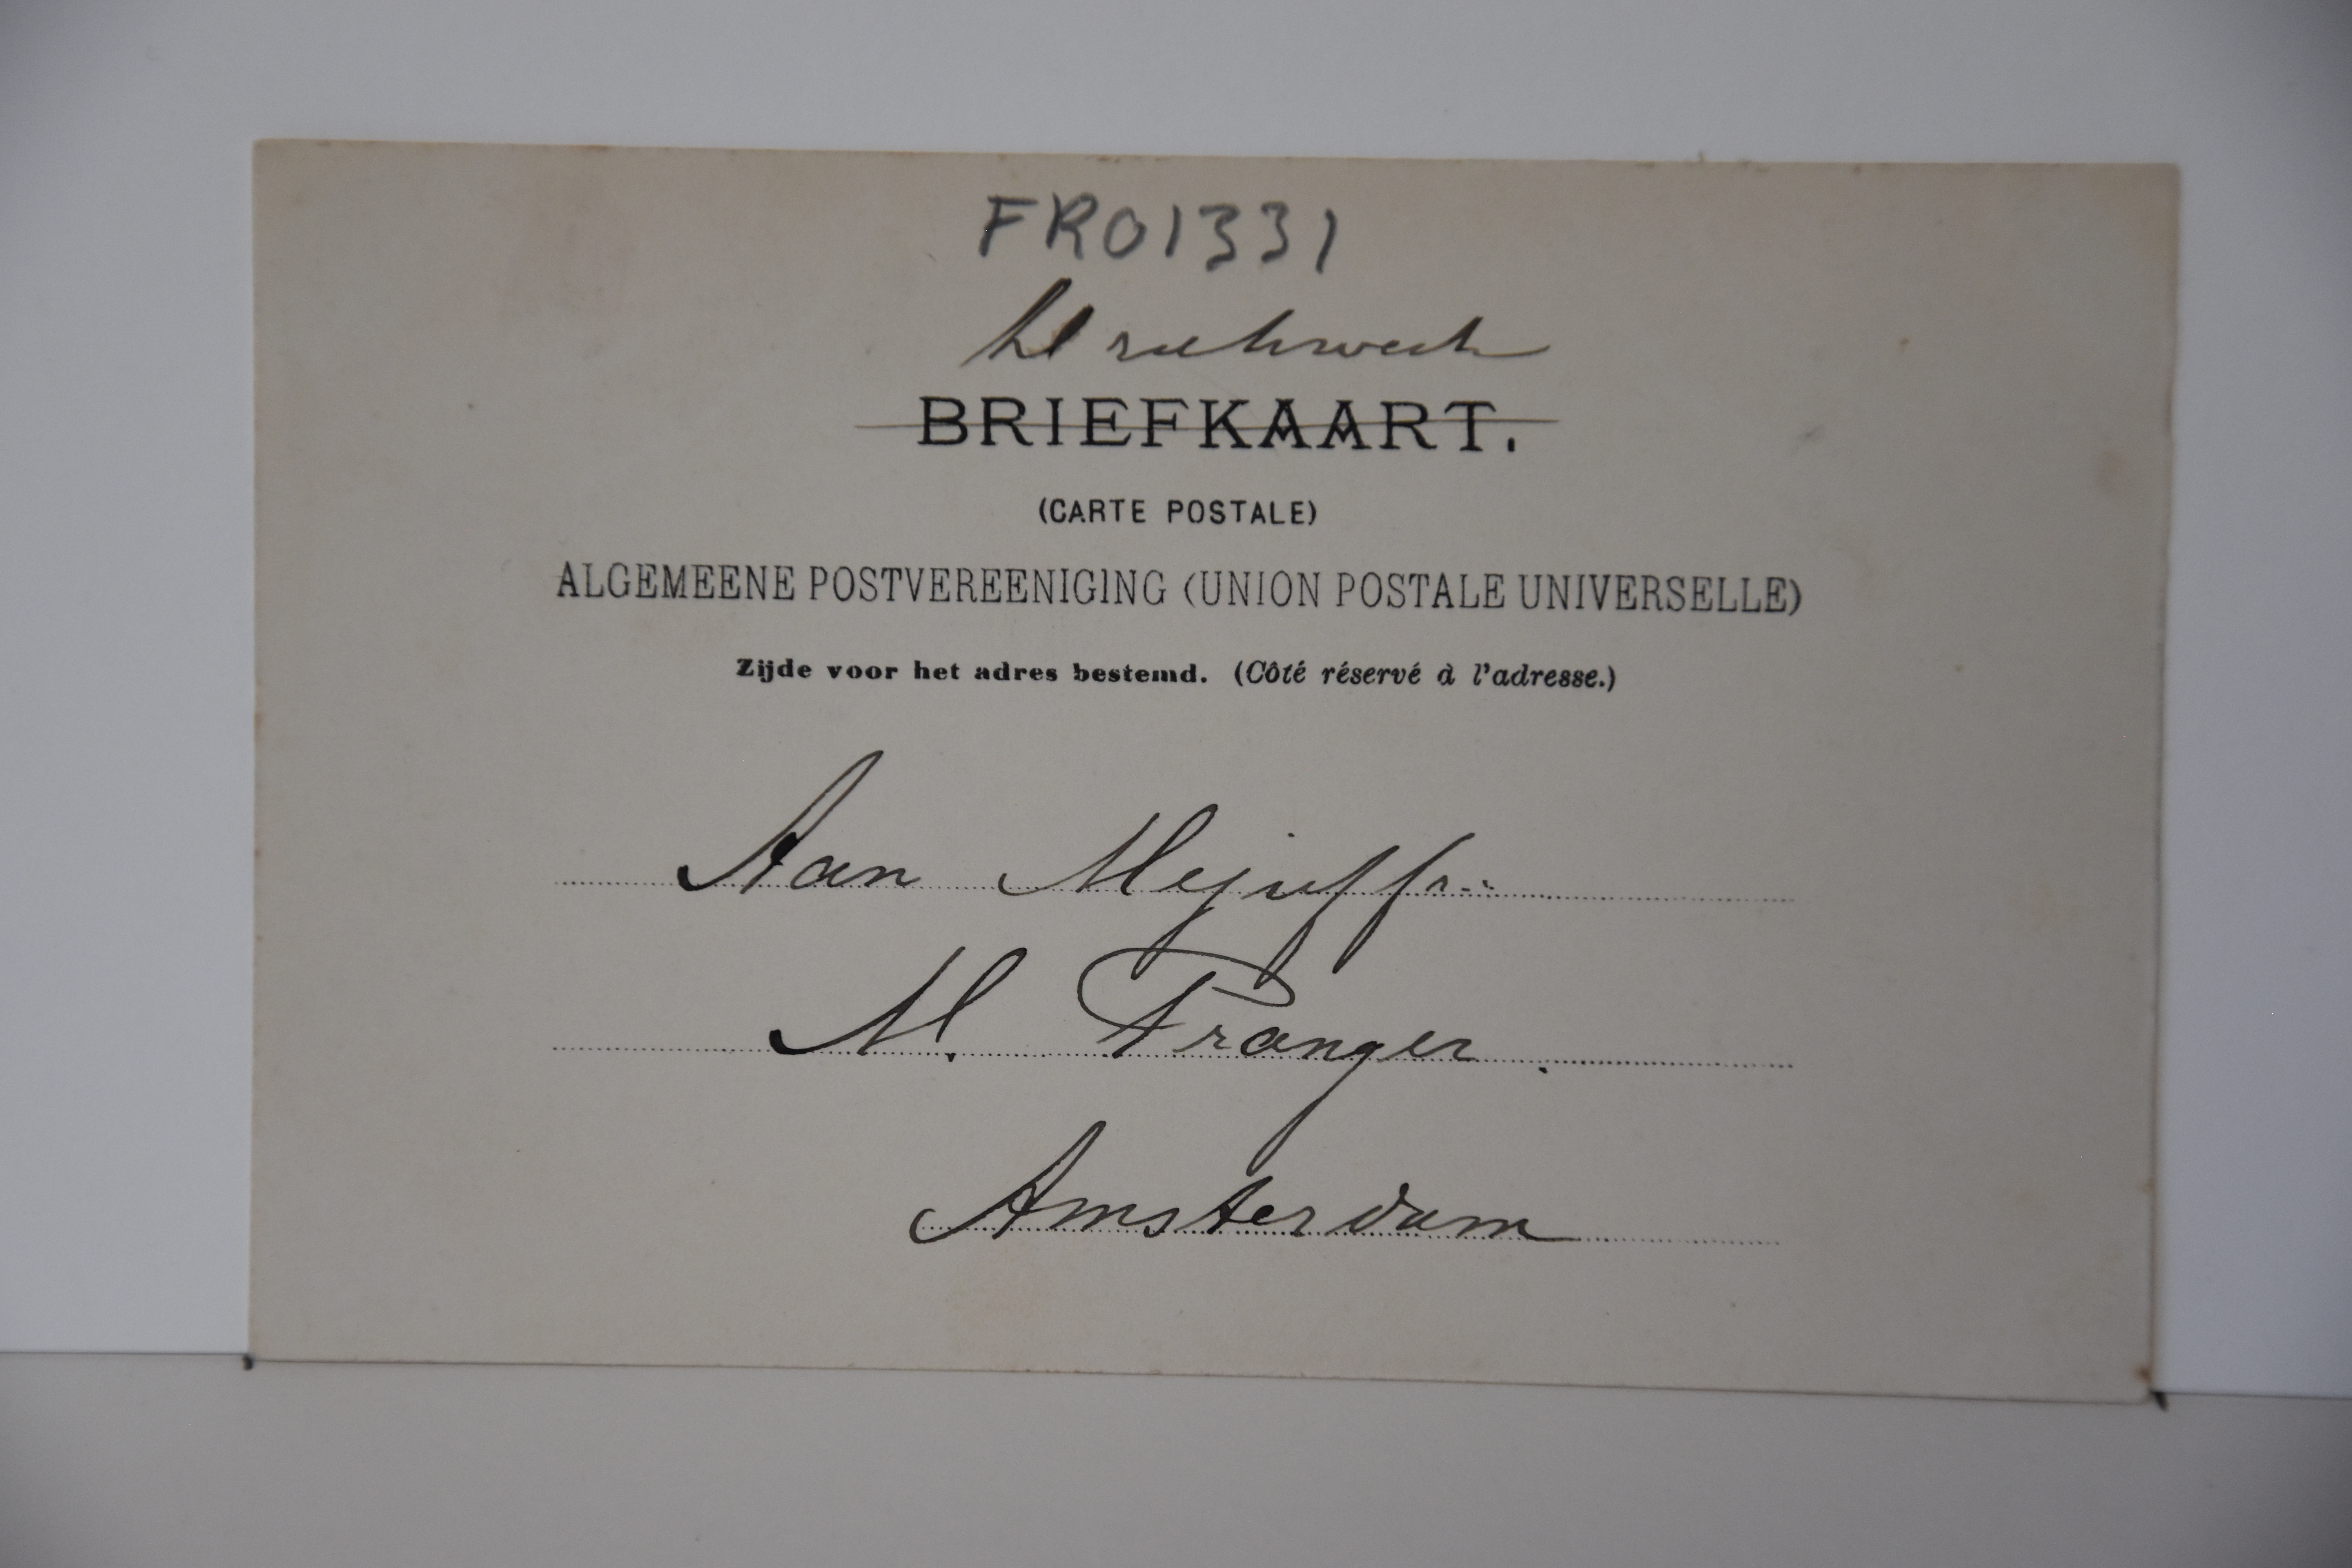 FR01331
BRIEFKAART.
(CARTE POSTALE)
ALGEMEENE POSTVEREENIGING (UNION POSTALE UNIVERSELLE)
Zijde voor het adres bestemd. (Côté réservé à l'adresse.)
Aan Mejuffr..
M. Pranger.
Amsterdam